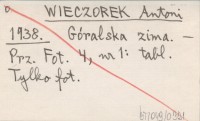 WIECZOREK Antoni
1938. Góralska zima. –
Prz. Fot. 4, nr 1: tabl.
Tylko fot.